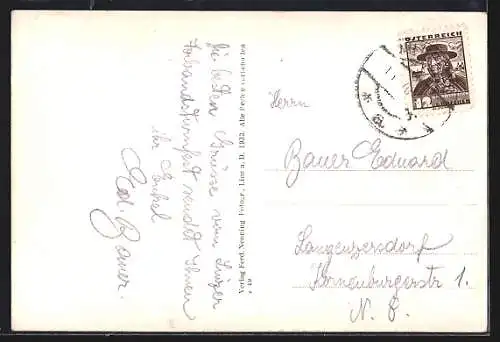 Die besten Grüsse vom Linzer
Verbandsturnfest sendet Ihnen
ihr Enkel
Ed. Bauer.
Verlag Ferd. Nesning Fotogr., Linz a. D. 1932. Alle Rechte vorbehalten
ÖSTERREICH
12
Herrn
Bauer Eduard
Langenzersdorf
Korneuburgerstr 1.
N. Ö.